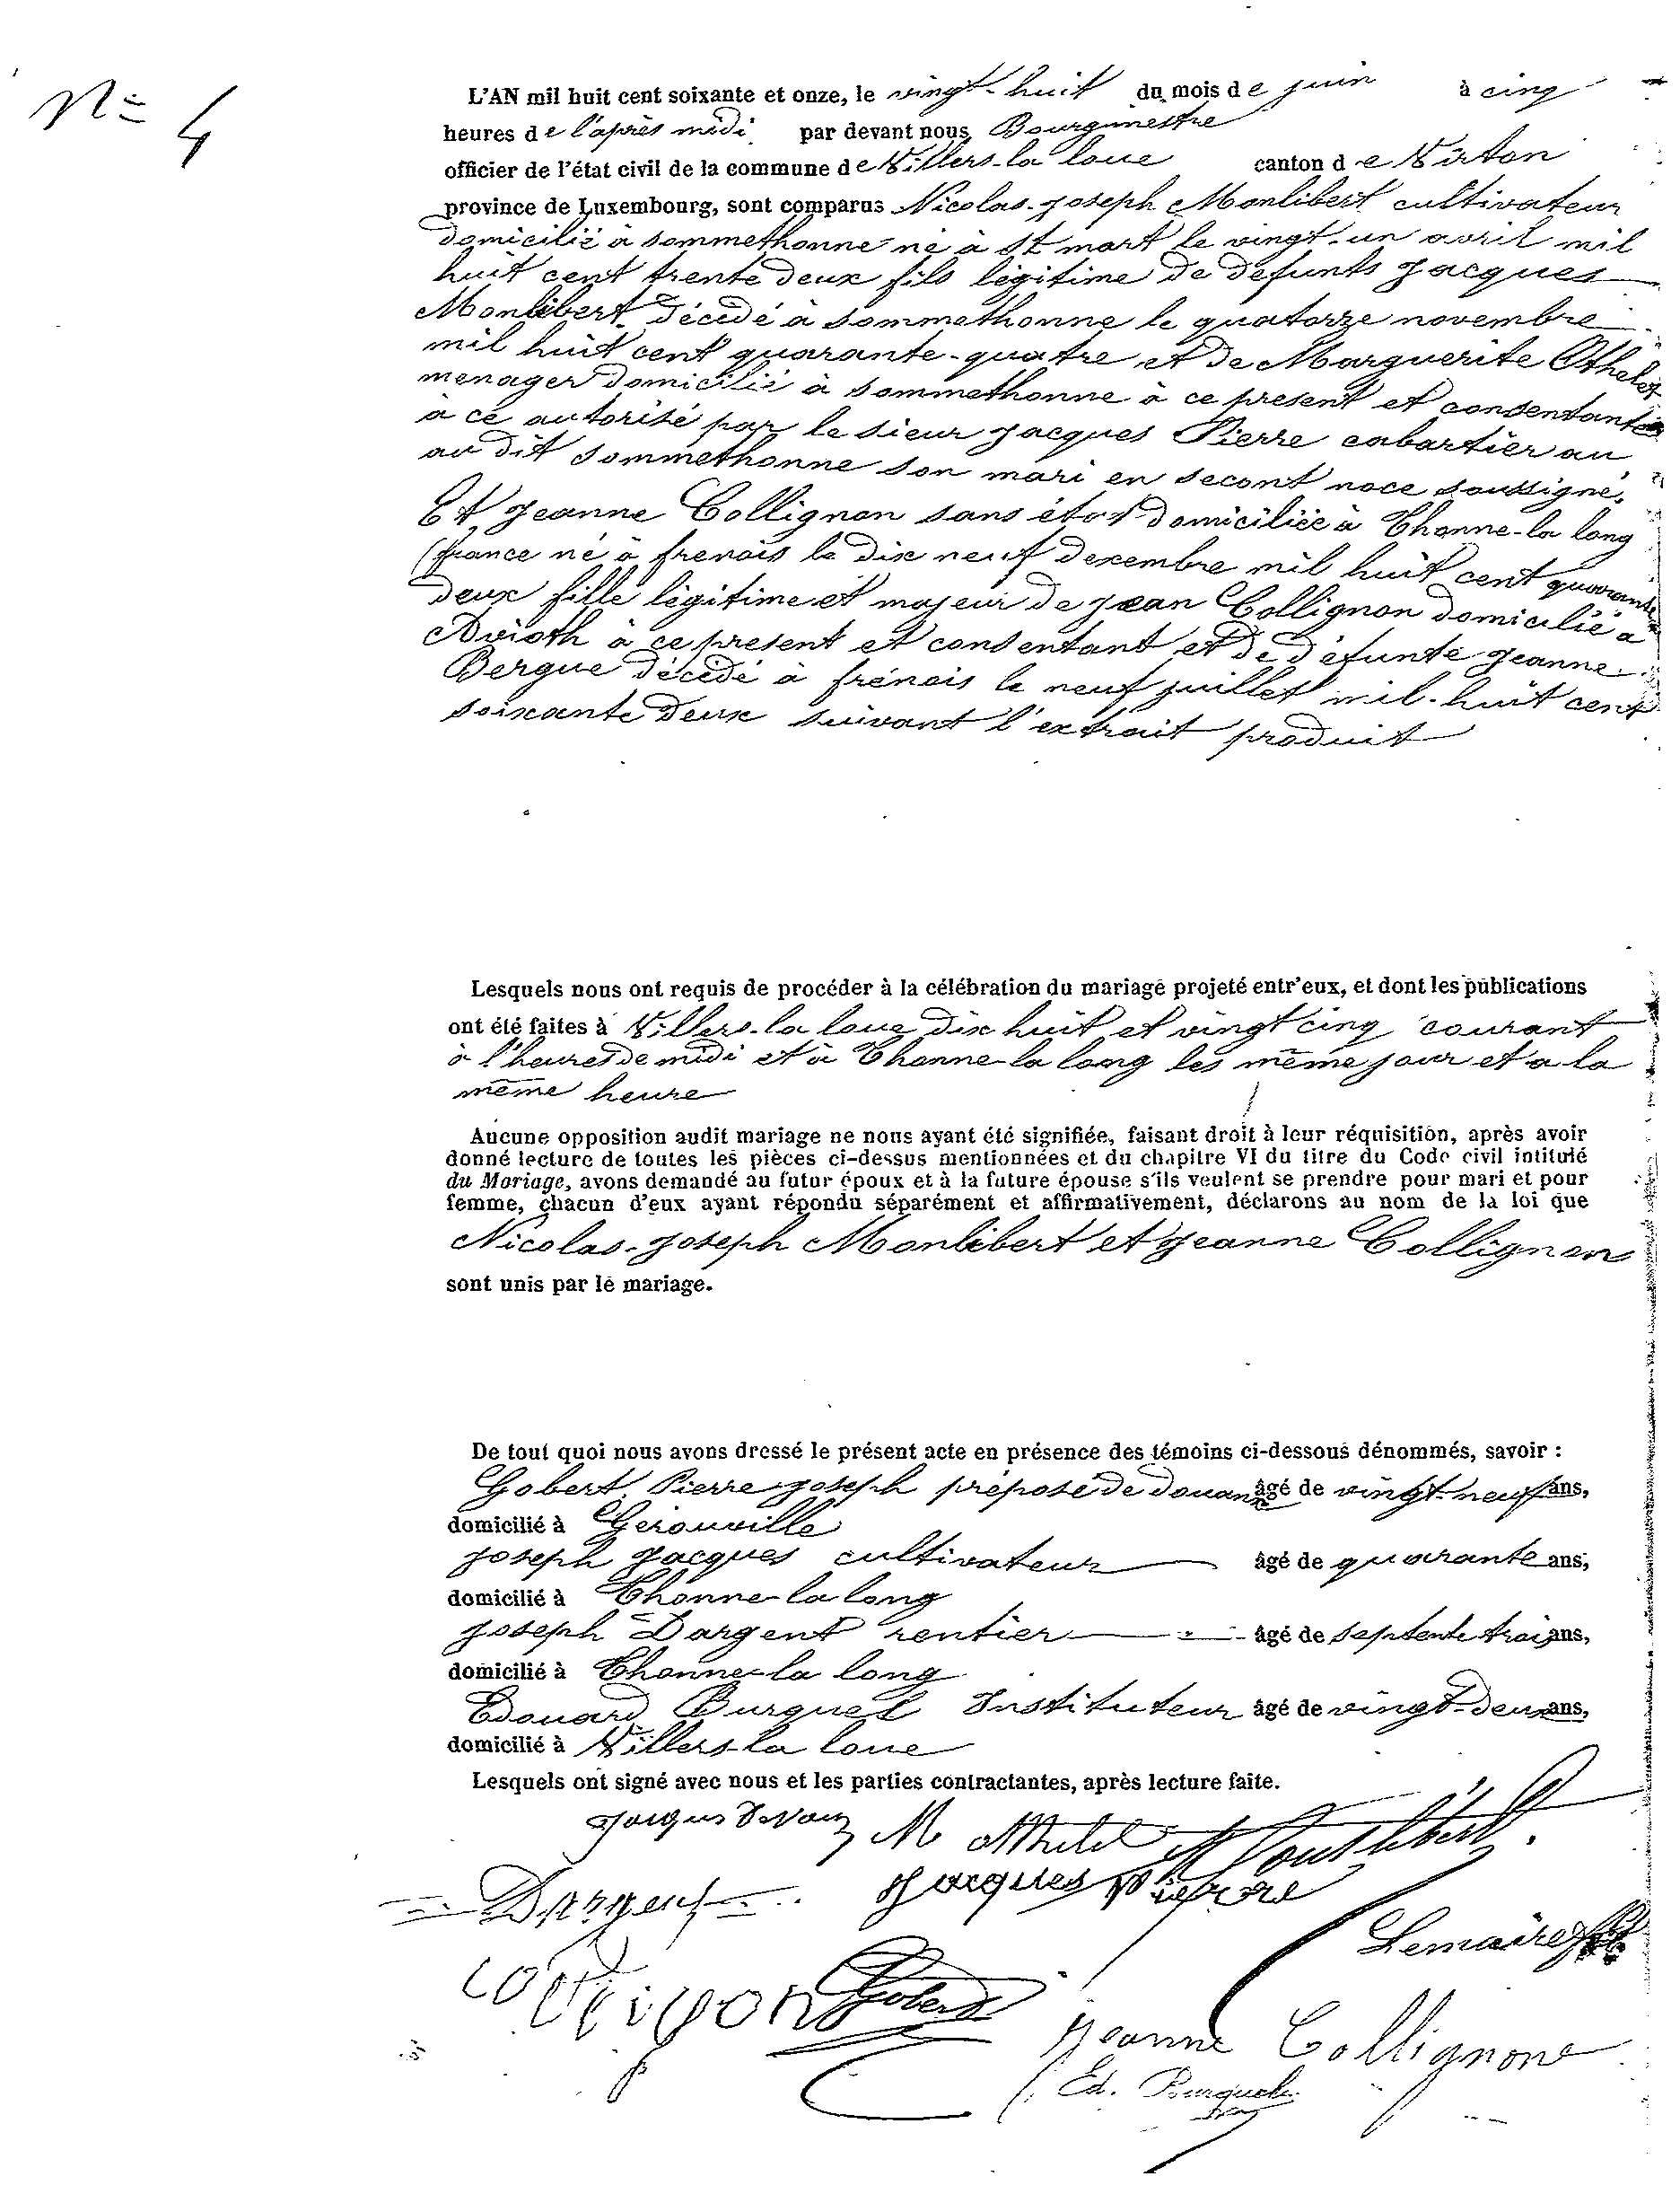 N° 4
L'AN mil huit cent soixante et onze, le vingt-huit du mois de juin à cinq
heures de l'après midi par devant nous Bourgmestre
officier de l'état civil de la commune de Villers-la loue canton de Virton
province de Luxembourg, sont comparus Nicolas-joseph Monlibert cultivateur
domicilié à sommethonne né à St mart le vingt-un avril mil
huit cent trente deux fils légitime de défunts jacques
Monlibert décédé à sommethonne le quatorze novembre
mil huit cent quarante-quatre et de Marguerite Othelet
menager domicilié à sommethonne à ce present et consentante
à ce autorisé par le sieur jacques Pierre cabartier au
au dit sommethonne son mari en secont noce soussigné.
Et jeanne Collignon sans état domiciliée à Thonne-la long
(france né à frenois le dix neuf dexembre mil huit cent quarante
deux fille légitime et majeur de jean Collignon domicilié à
Avioth à ce present et consentant et de défunte jeanne
Bergue décédé à frénois le neuf juillet mil-huit cent
soixante deux suivant l'extrait produit
Lesquels nous ont requis de procéder à la célébration du mariage projeté entr'eux, et dont les publications
ont été faites à Villers-la loue dix huit et vingt cinq courant
à l'heures de midi et à Thonne-la long les même jour et a la
même heure
Aucune opposition audit mariage ne nous ayant été signifiée, faisant droit à leur réquisition, après avoir
donné lecture de toutes les pièces ci-dessus mentionnées et du chapitre VI du titre du Code civil intitulé
du Mariage, avons demandé au futur époux et à la future épouse s'ils veulent se prendre pour mari et pour
femme, chacun d'eux ayant répondu séparément et affirmativement, déclarons au nom de la loi que
Nicolas-joseph Monlibert et jeanne Collignon
sont unis par le mariage.
De tout quoi nous avons dressé le présent acte en présence des témoins ci-dessous dénommés, savoir :
Gobert Pierre joseph préposé de douane âgé de vingt-neuf ans,
domicilié à Gérouville
joseph jacques cultivateur âgé de quarante ans,
domicilié à Thonne-la long
joseph Dargent rentier âgé de septente trois ans,
domicilié à Thonne-la long
Edouard Burquel Instituteur âgé de vingt-deux ans,
domicilié à Villers-la loue
Lesquels ont signé avec nous et les parties contractantes, après lecture faite.
M Othelet Monlibert
Dargent jacques Pierre
Lemaire
collignon Gobert
jeanne Collignone
Ed. Burquel